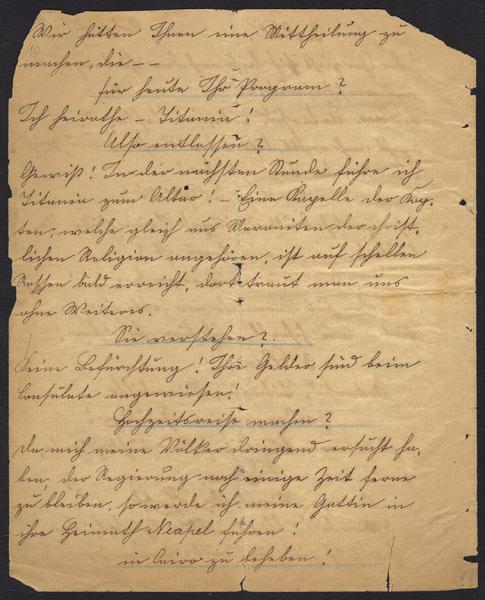 Wir hätten Ihnen eine Mittheilung zu
machen, die – –
für heute Ihr Program?
Ich heirathe – Titania!
Also entlassen?
Gewiß! In der nächsten Stunde führe ich
Titania zum Altar. – Eine Kapelle der Kop-
ten, welche gleich uns Maroniten der christ-
lichen Religion angehören, ist auf schnellen
Rossen bald erreicht, dort traut man uns
ohne Weiteres.
Sie verstehen?
Keine Befürchtung! Ihre Gelder sind beim
Consulate angewiesen!
Hochzeitsreise machen?
Da mich meine Völker dringend ersucht ha-
ben, der Regierung noch einige Zeit ferne
zu bleiben, so werde ich meine Gattin in
ihre Heimath Neapel führen!
in Cairo zu beheben!